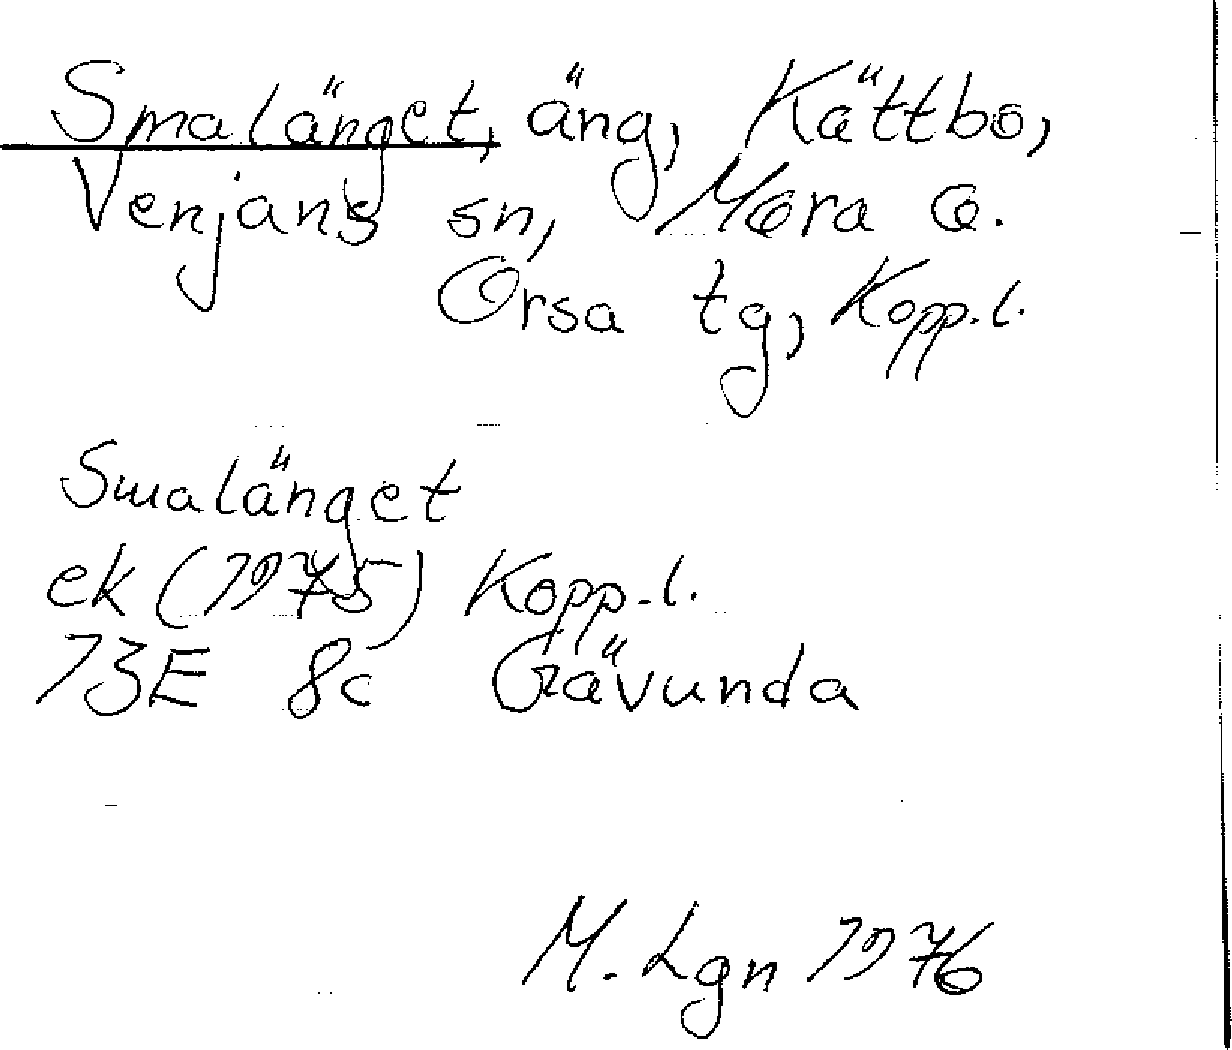 Smalänget, äng, Kättbo,
Venjans sn, Mora o.
Orsa tg, Kopp.l.
Smalänget
ek (1975) Kopp.l.
13E 8c Gävunda
M. Lgn 1976